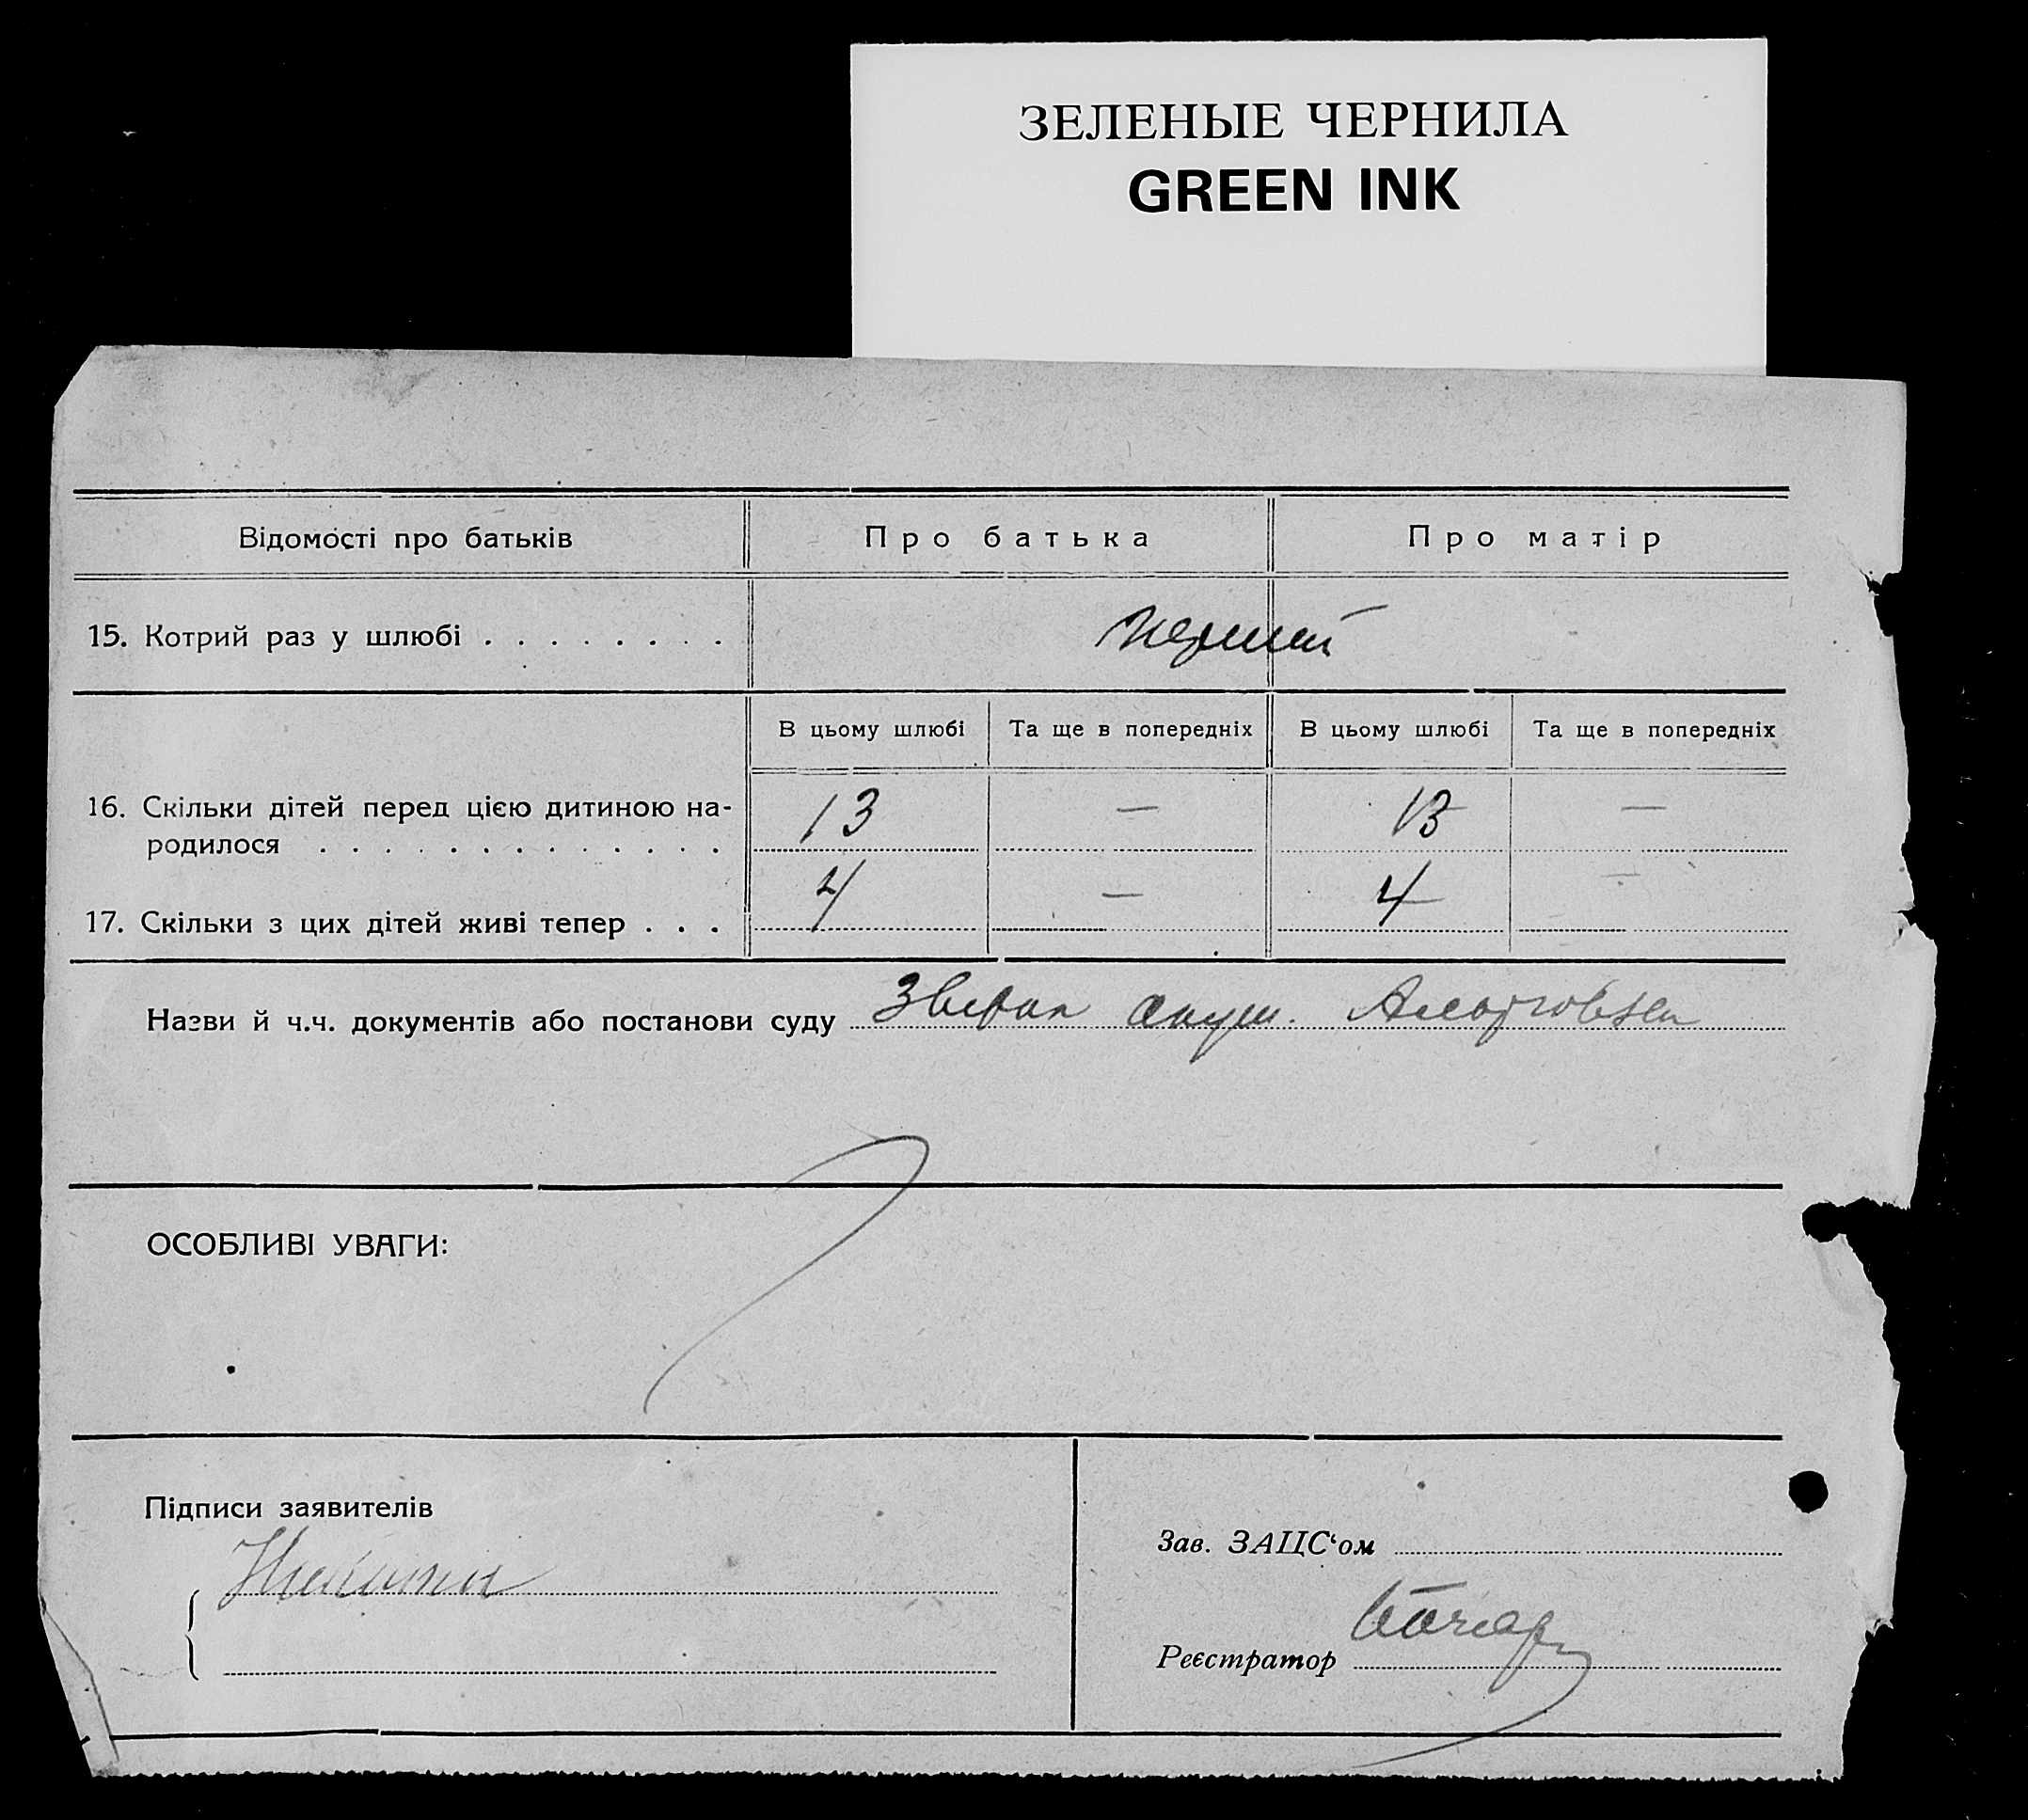 ЗЕЛЕНЫЕ ЧЕРНИЛА
GREEN INK
Відомості про батьків Про батька Про матір
15. Котрий раз у шлюбі . . . . . . . . перший
В цьому шлюбі Та ще в попередніх В цьому шлюбі Та ще в попередніх
16. Скільки дітей перед цією дитиною на-
родилося . . . . . . . . . . . . . 13 — 13 —
17. Скільки з цих дітей живі тепер . . . 4 — 4 —
Назви й ч.ч. документів або постанови суду акуш.
ОСОБЛИВІ УВАГИ:
Підписи заявителів
Зав. ЗАЦС‘ом
Реєстратор